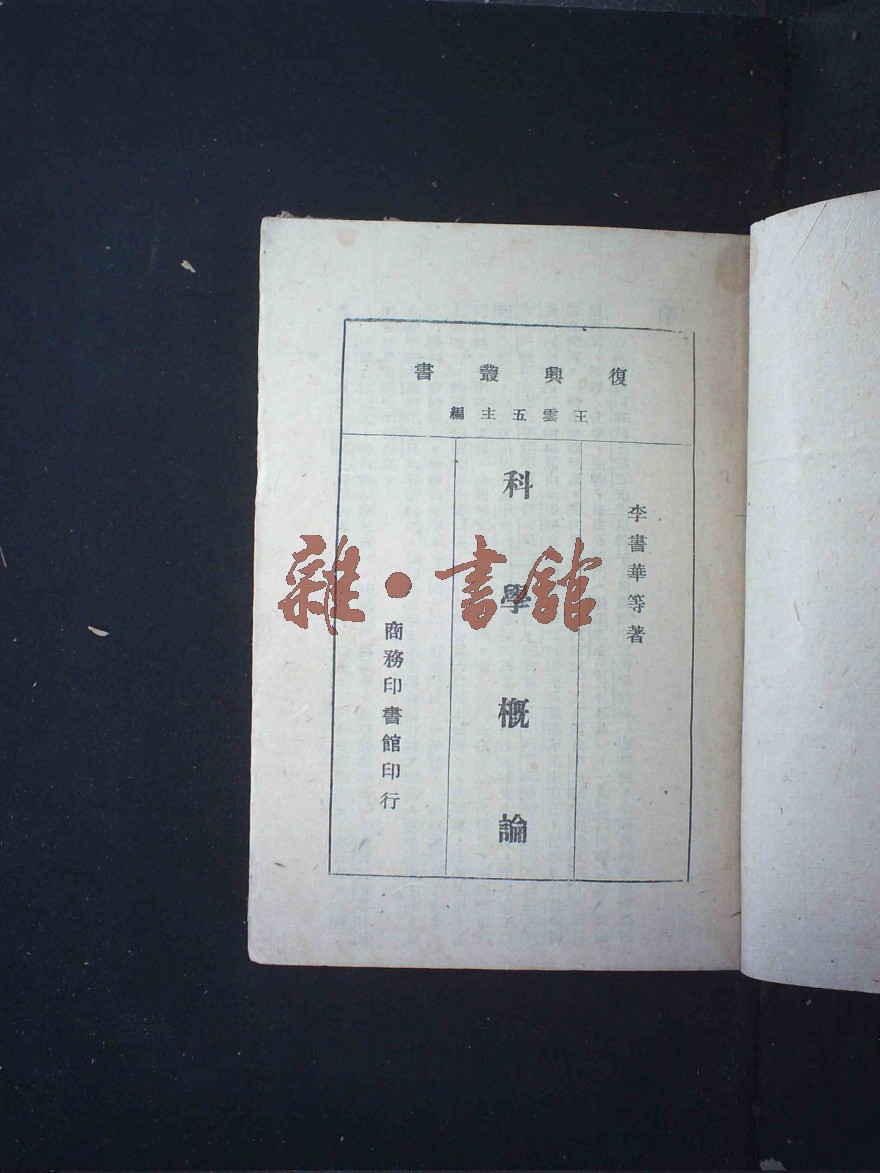 復興叢書
王雲五主編
李書華等著
科學概論
商務印書館印行
雜·書館